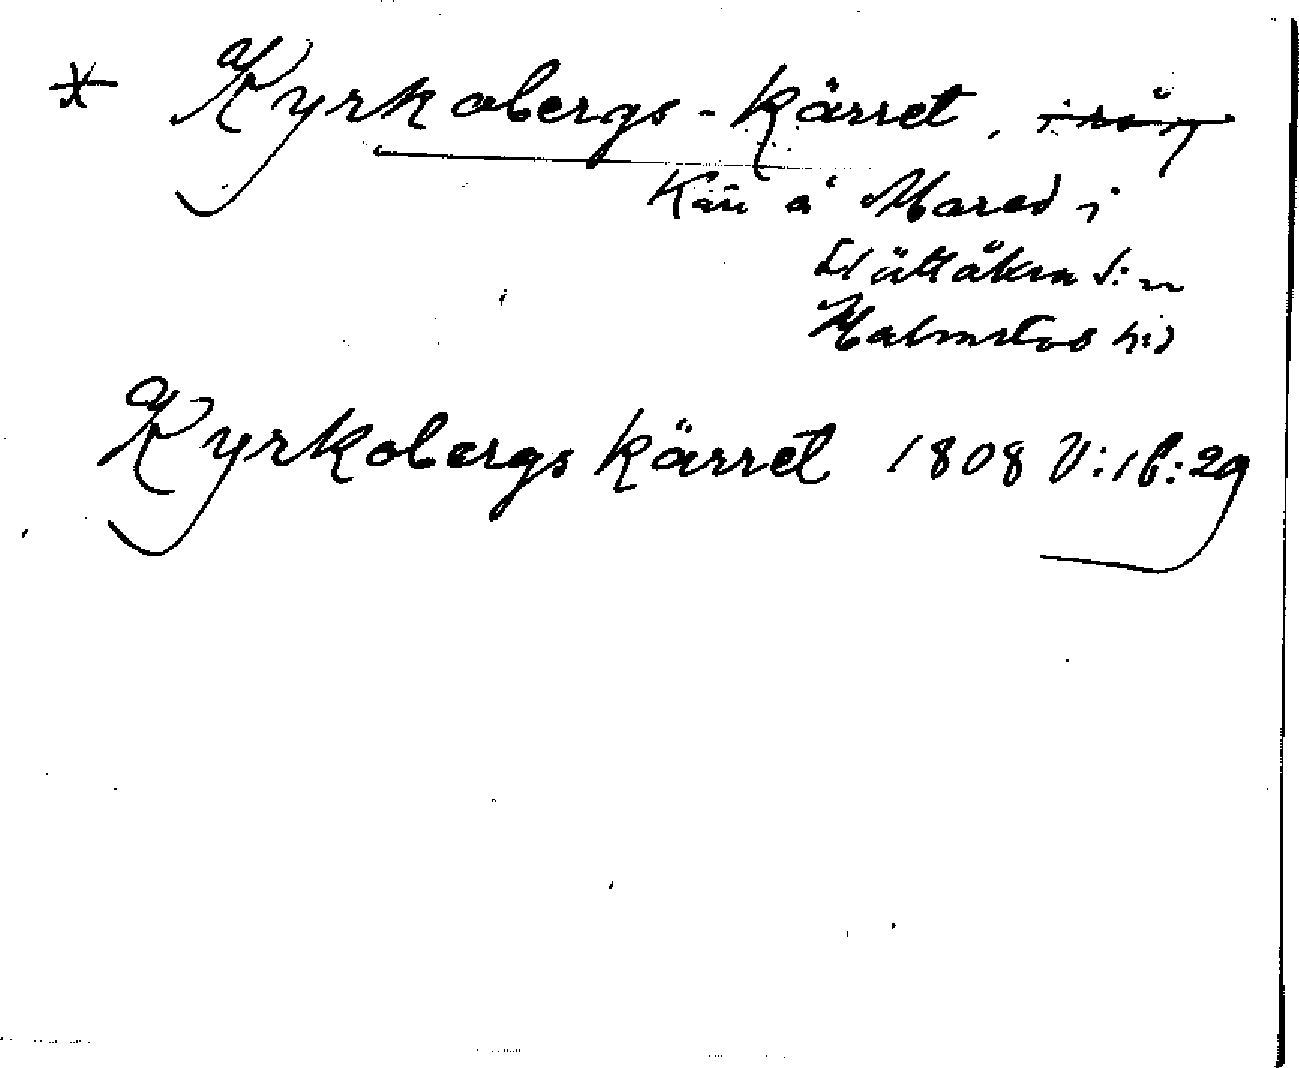 * Kyrkobergs-kärret.
Kärr å Mared i
Slättåkra s:n
Halmstads h:d
Kyrkobergs kärret 1808 V:18:29